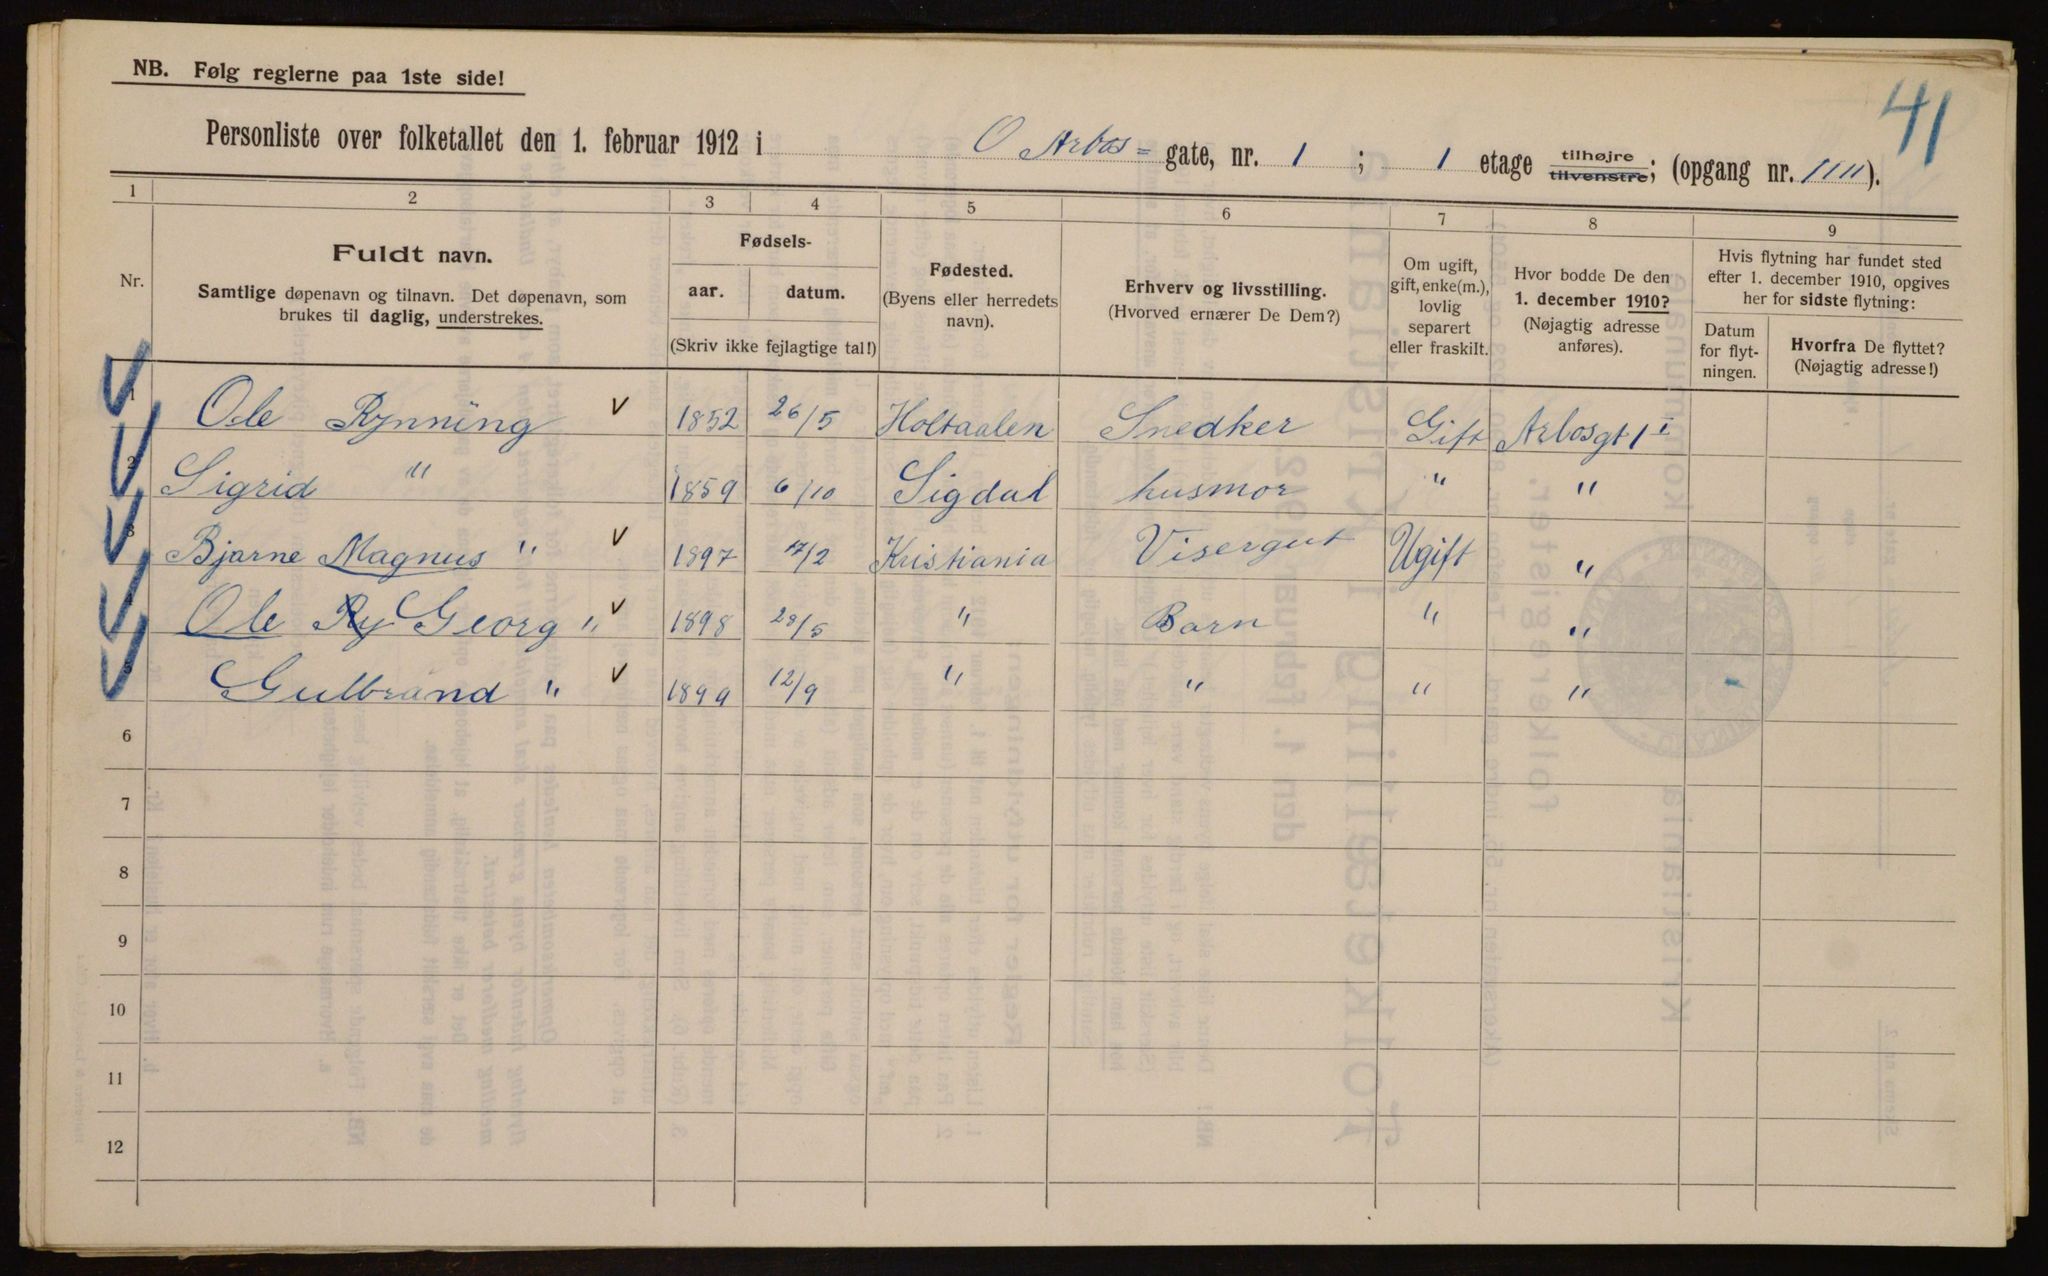 NB. Følg reglerne paa 1ste side!
41
Personliste over folketallet den 1. februar 1912 i O Arbos= gate, nr. 1 ; 1 etage tilhøjre tilvenstre; (opgang nr. 1111).
1 2 3 4 5 6 7 8 9
Nr.
Fuldt navn.
Samtlige døpenavn og tilnavn. Det døpenavn, som
brukes til daglig, understrekes.
Fødsels-
aar. datum.
(Skriv ikke fejlagtige tal!)
Fødested.
(Byens eller herredets
navn).
Erhverv og livsstilling.
(Hvorved ernærer De Dem?)
Om ugift,
gift, enke(m.),
lovlig
separert
eller fraskilt.
Hvor bodde De den
1. december 1910?
(Nøjagtig adresse
anføres).
Hvis flytning har fundet sted
efter 1. december 1910, opgives
her for sidste flytning:
Datum
for flyt-
ningen.
Hvorfra De flyttet?
(Nøjagtig adresse!)
1 Ole Rynning v 1852 26/5 Holtaalen Snedker Gift Arbosgt 1 I
2 Sigrid " 1859 6/10 Sigdal husmor " "
3 Bjarne Magnus " v 1897 17/2 Kristiania Visergut Ugift "
Ole Ry Georg " v 1898 28/5 " Barn " "
5 Gulbrand " v 1899 12/9 " " " "
6
7
8
9
10
11
12